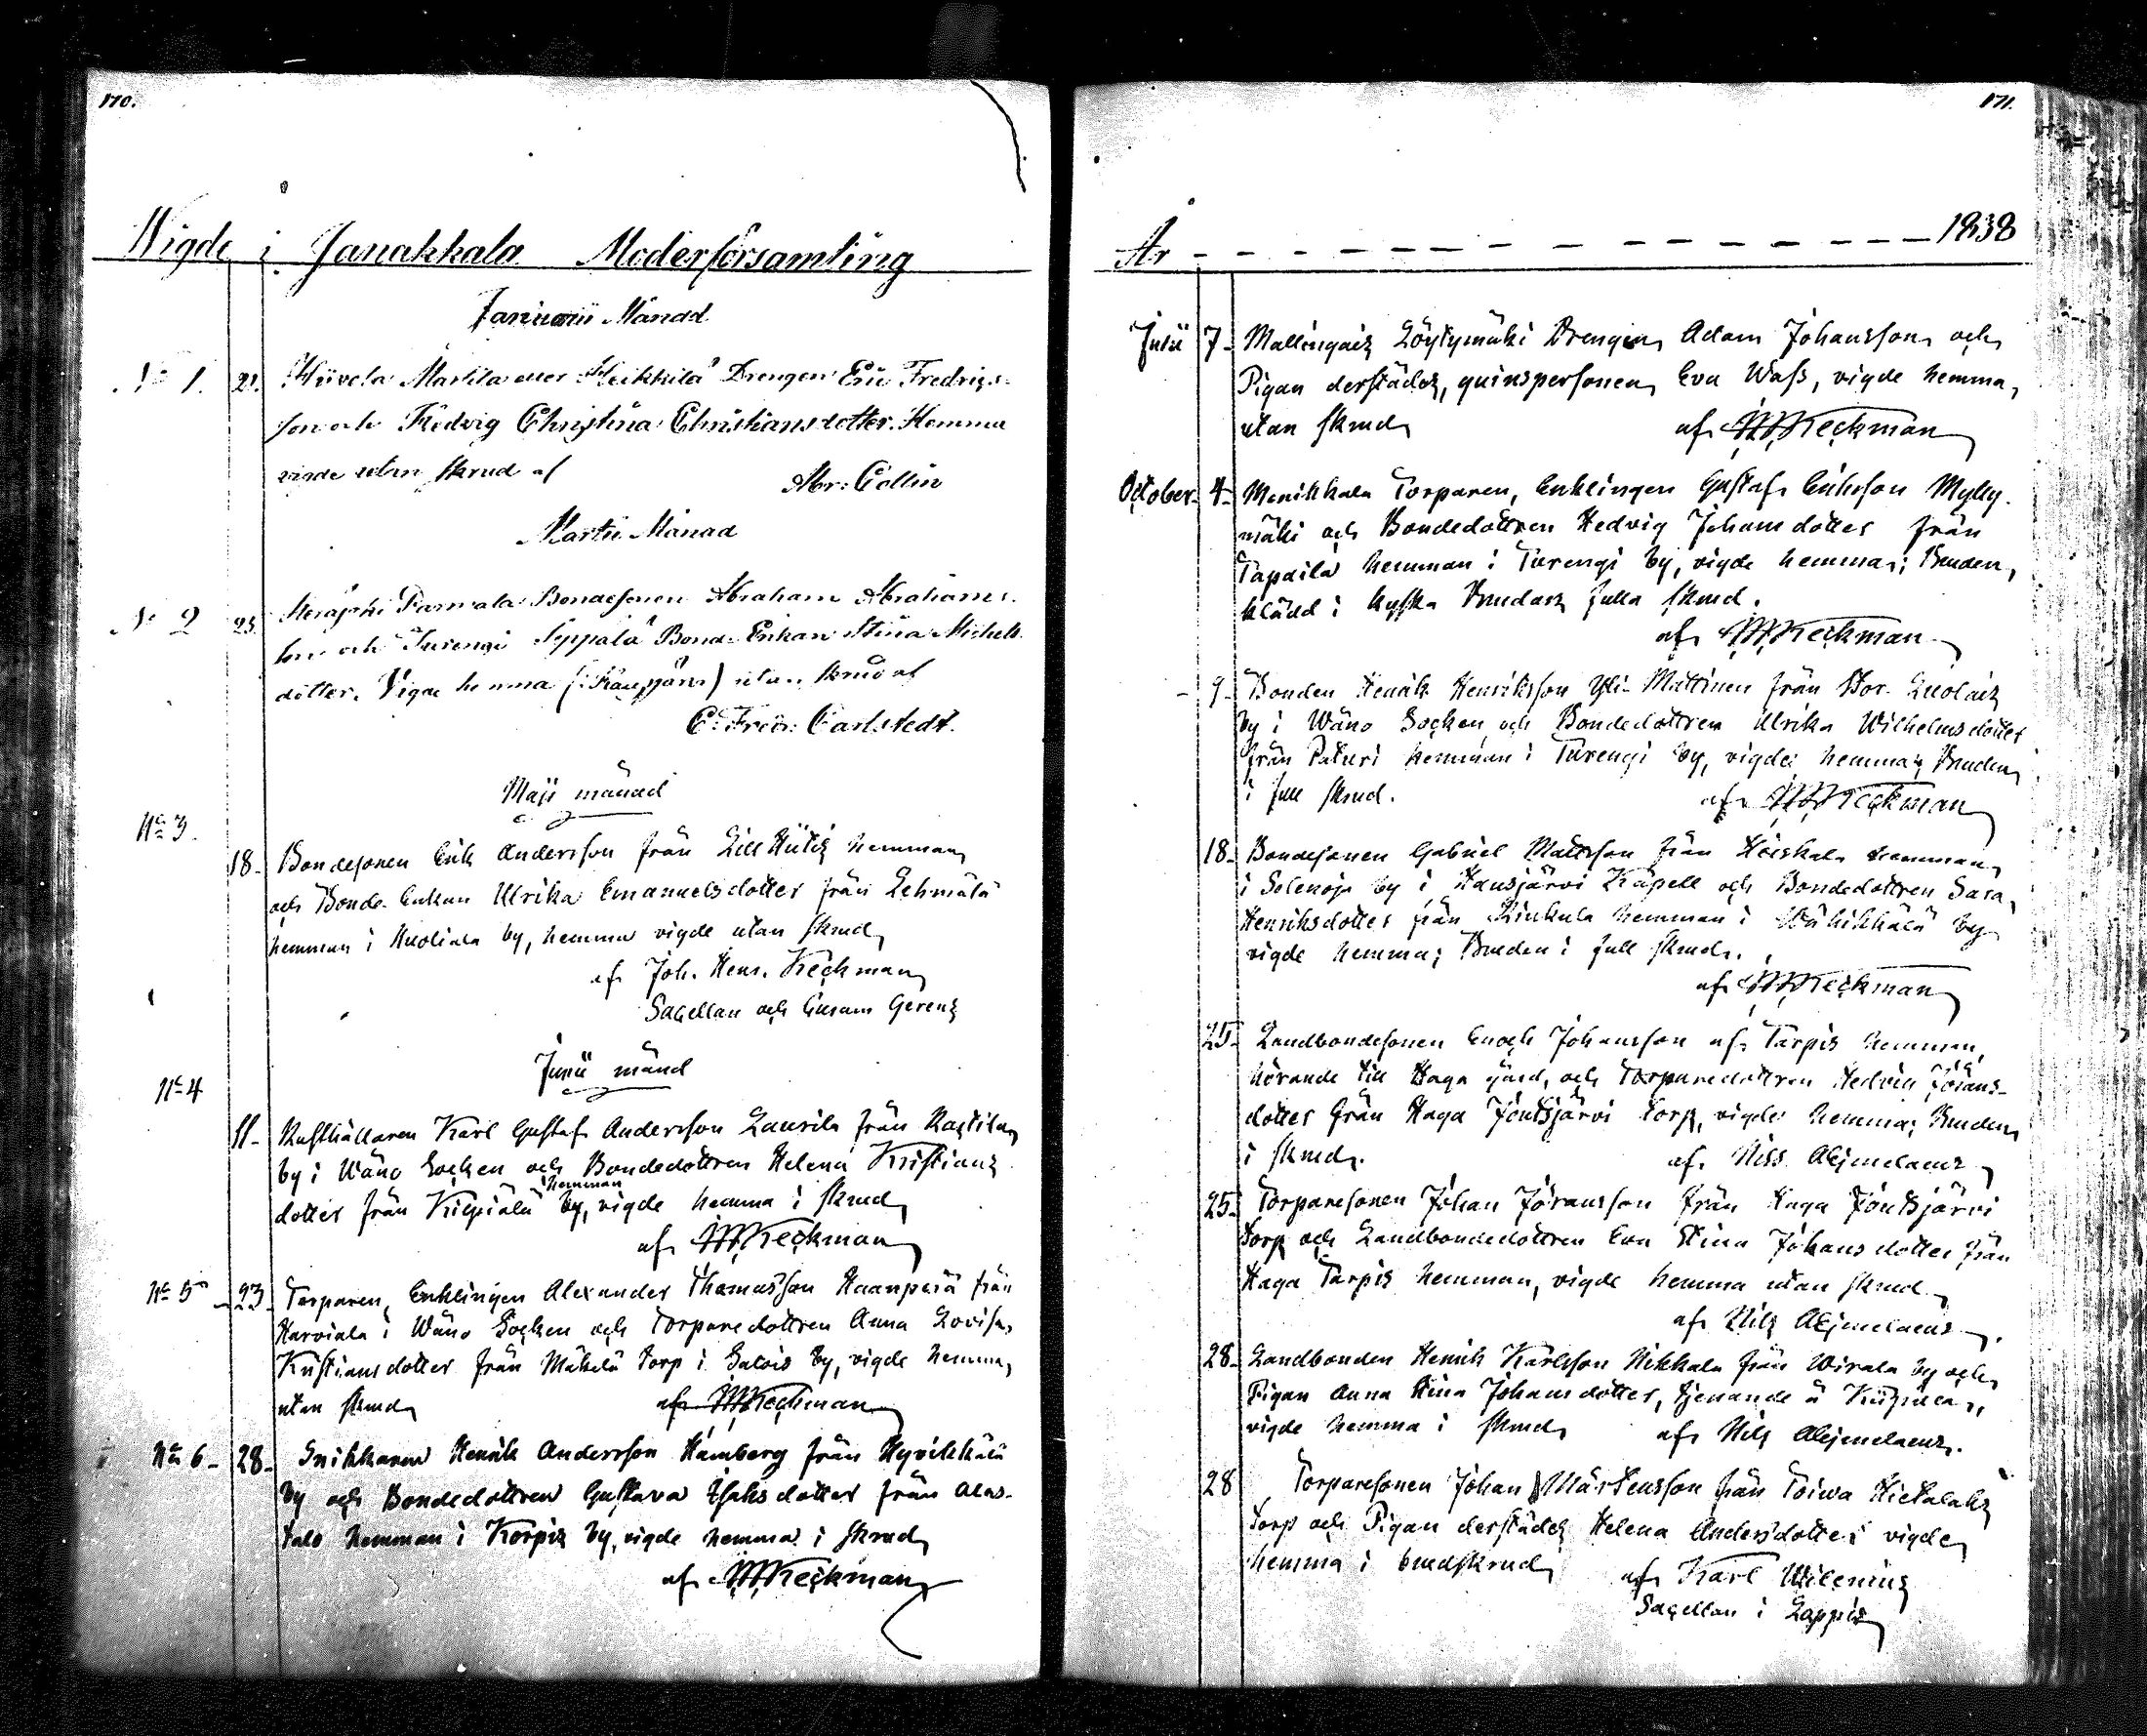 170.
Wigde i Janakkala Moderförsamling
Januarii Månad
N° 1. 21. Martila eller Heikkilä Drengen Eric Fredrics-
son och Hedvig Christina Christiansdotter. Hemma
vigde utan skrud af Abr: Collin
Martii Månad
N° 2 25. Bondesonen Abraham Abrahams-
son och Turengi Seppälä Bonde Enkan Stina Michels-
dotter. Vigde hemma utan skrud af
C: Fredr: Carlstedt.
Maji månad
N° 3.
18. Bondesonen Erik Andersson från Lill Hiitis hemman
och Bonde-Enkan Ulrika Emanuelsdotter från Lehmälä
hemman i by, hemma vigde utan skrud
af Joh. Henr. Keckman
Sacellan och Cur. Gerens
Junii månd
N° 4
11. Rusthållaren Karl Gustaf Andersson Laurila från Rastila
by i Wåno Socken och Bondedottren Helena Kristians
hemman
dotter från Kiipiälä by, vigde hemma i skrud
af JHKeckman
N° 5 23. Torparen, Enklingen Alexander Thomasson Haanperä från
Harviala i Wåno Socken och Torparedottren Anna Lovisa
Kristiansdotter från Mäkelä torp i Salois by, vigde hemma,
utan skrud af JHKeckman
N° 6 28. Snikkaren Henrik Andersson Hamberg från Hyvikkälä
by och Bondedottren Gustava Isaksdotter från Alas-
talo hemman i Korpis by, vigde hemma i skrud
af JHKeckman
171.
År 1838
Julii 7. Mallingais Löytymäki Drengen Adam Johansson och
Pigan derstädes, qvinspersonen Eva Wass, vigde hemma,
utan skrud af JHKeckman
October 4. Monikkala Torparen, Enklingen Gustaf Eriksson Mylly-
mäki och Bondedottren Hedvig Johansdotter från
Tapaila hemman i Turengi by, vigde hemma; Bruden,
klädd i kyska brudars fulla skrud.
af JHKeckman
9. Bonden Henrik Henriksson Yli-Mattinen från Stor-Luolais
by i Wåno Socken och Bondedottren Ulrika Wilhelmsdotter
från Paturi hemman i Turengi by, vigde hemma; Bruden
i full skrud. af JHKeckman
18. Bondesonen Gabriel Mattsson från Heiskala hemman
i by i Hausjärvi Kapell och Bondedottren Sara
Henriksdotter från hemman i Wähikkälä by
vigde hemma; Bruden i full skrud.
af JHKeckman
25. Landbondesonen Enoch Johansson af Tarpis hemman,
hörande till Haga gård, och Torparedottren Hedvig Jörans-
dotter från Haga torp, vigde hemma; Bruden
i skrud. af Nils Alejmelaeus
25. Torparesonen Johan Jöransson från Haga
torp och Landbondedottren Eva Stina Johansdotter från
Haga Tarpis hemman, vigde hemma utan skrud
af Nils Alejmelaeus
28. Landbonden Henrik Karlsson Nikkala från Wirala by och
Pigan Anna Stina Johansdotter, tjenande å
vigde hemma i skrud af Nils Alejmelaeus.
28 Torparesonen Johan Mårtensson från Toiwa
torp och Pigan derstädes Helena Andersdotter vigde
hemma i brudskrud af Karl Wilenius
Sacellan i Loppis